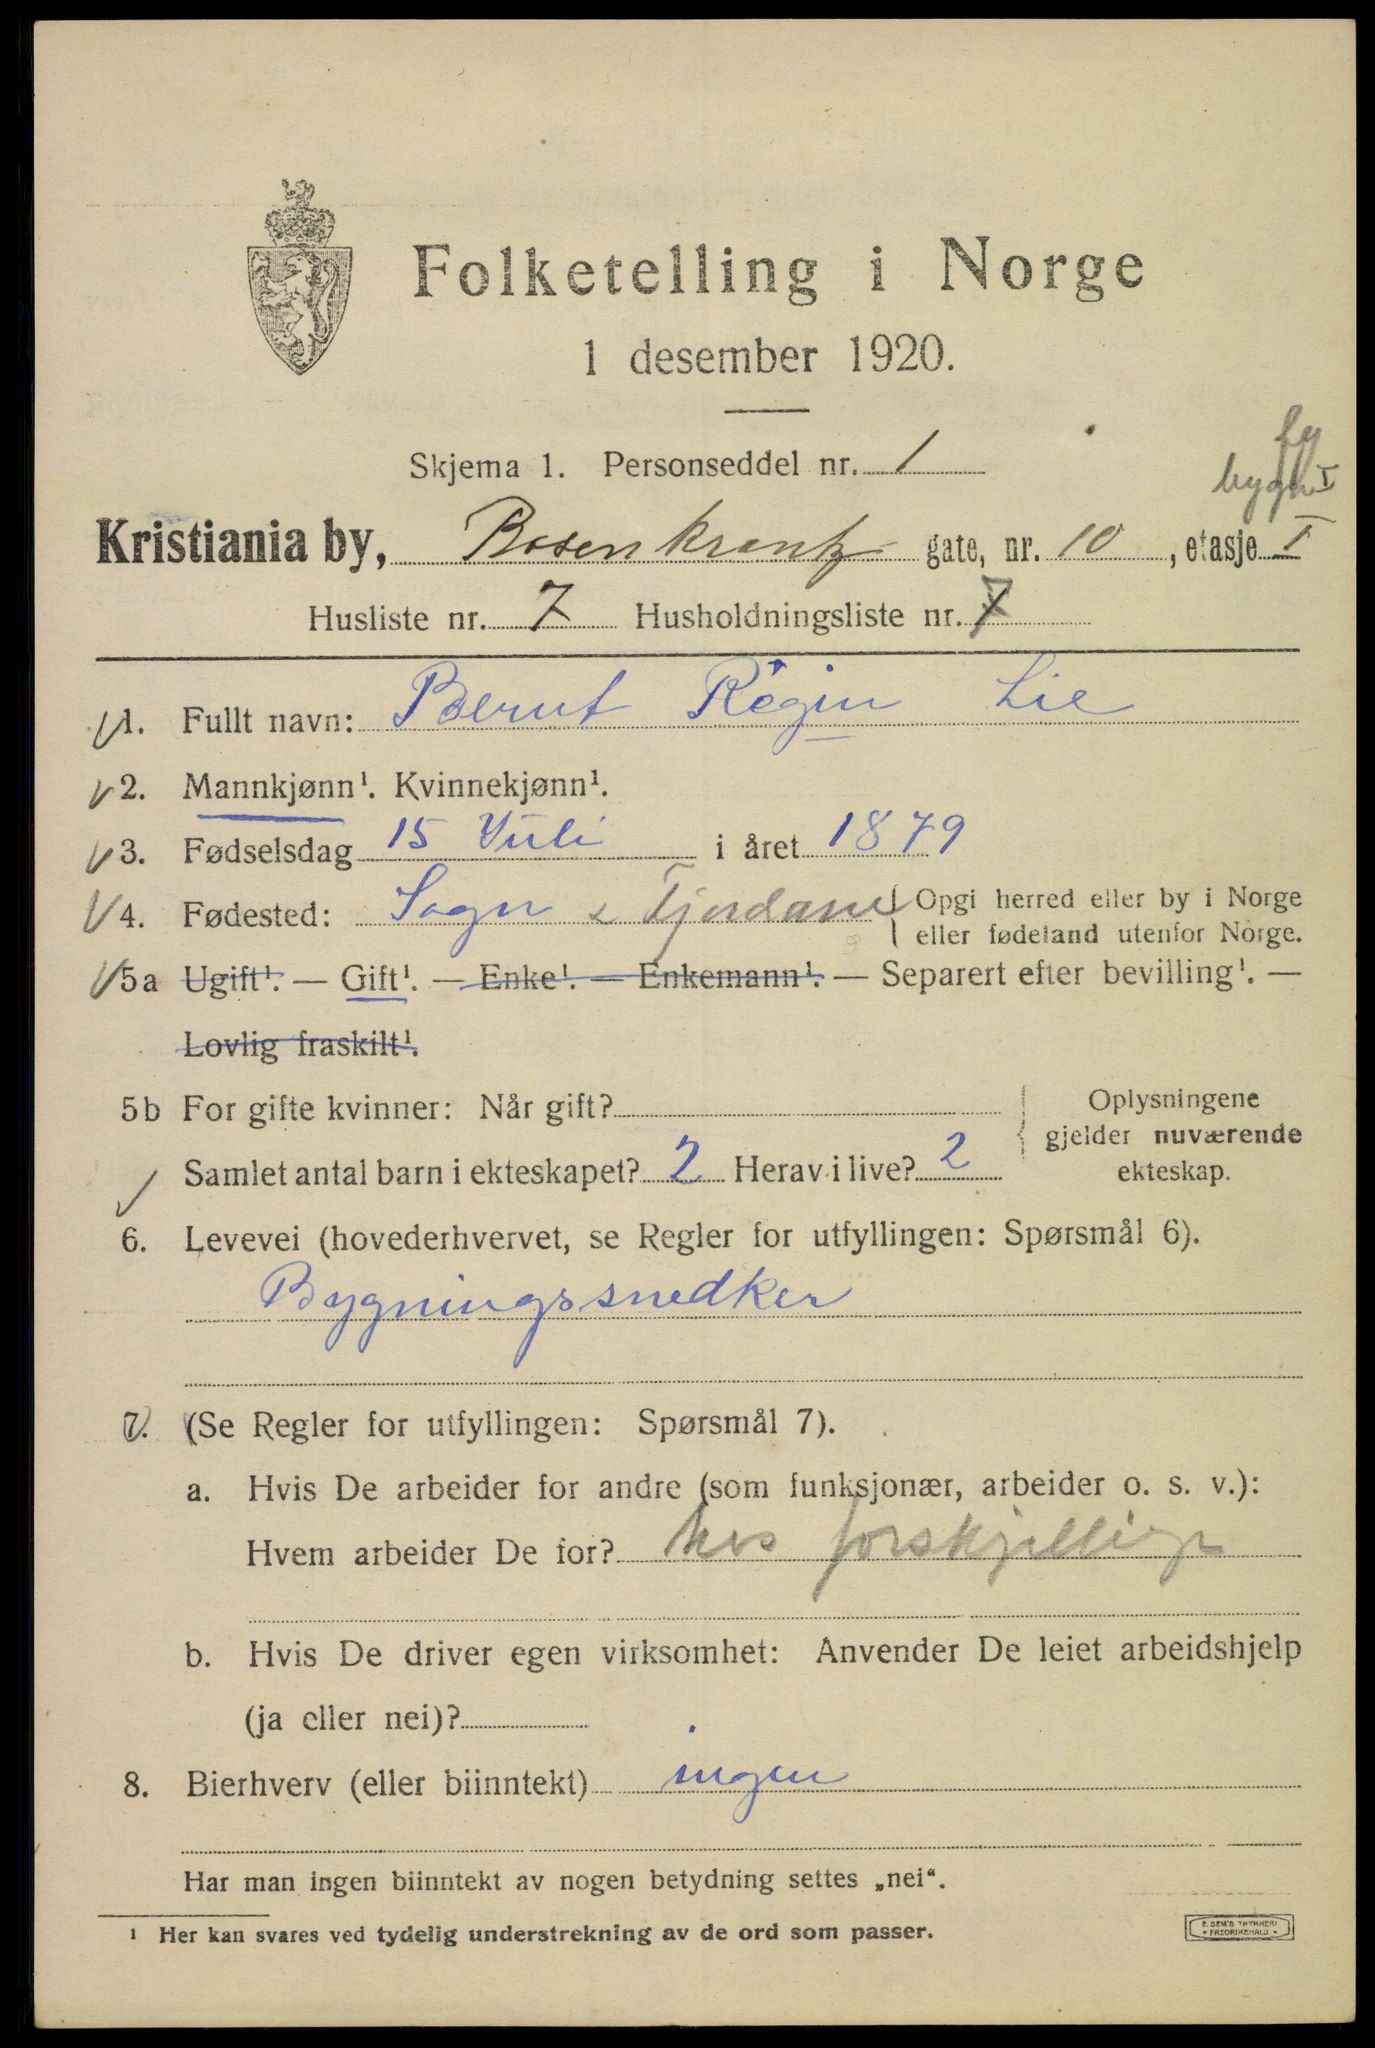 Folketelling i Norge
1 desember 1920.
Skjema 1. Personseddel nr. 1
Kristiania by, Rosenkrantz gate, nr. 10, etasje I
Husliste nr. 7 Husholdningsliste nr. 7
1. Fullt navn: Bernt Regin Lie
2. Mannkjønn¹. Kvinnekjønn¹.
3. Fødselsdag 15 Juli i året 1879
4. Fødested: Sogn & Fjordane { Opgi herred eller by i Norge
eller fødeland utenfor Norge.
5a Ugift¹. — Gift¹. — Enke¹. — Enkemann¹. — Separert efter bevilling¹. —
Lovlig fraskilt¹.
5b For gifte kvinner: Når gift?
Samlet antal barn i ekteskapet? 2 Herav i live? 2
Oplysningene
gjelder nuværende
ekteskap.
6. Levevei (hovederhvervet, se Regler for utfyllingen: Spørsmål 6).
Bygningssnedker
7. (Se Regler for utfyllingen: Spørsmål 7).
a. Hvis De arbeider for andre (som funksjonær, arbeider o. s. v.):
Hvem arbeider De for? hos forskjellige
b. Hvis De driver egen virksomhet: Anvender De leiet arbeidshjelp
(ja eller nei)?
8. Bierhverv (eller biinntekt) ingen
Har man ingen biinntekt av nogen betydning settes „nei“.
¹ Her kan svares ved tydelig understrekning av de ord som passer.
E. SEM'S TRYKKERI
FREDRIKSHALD